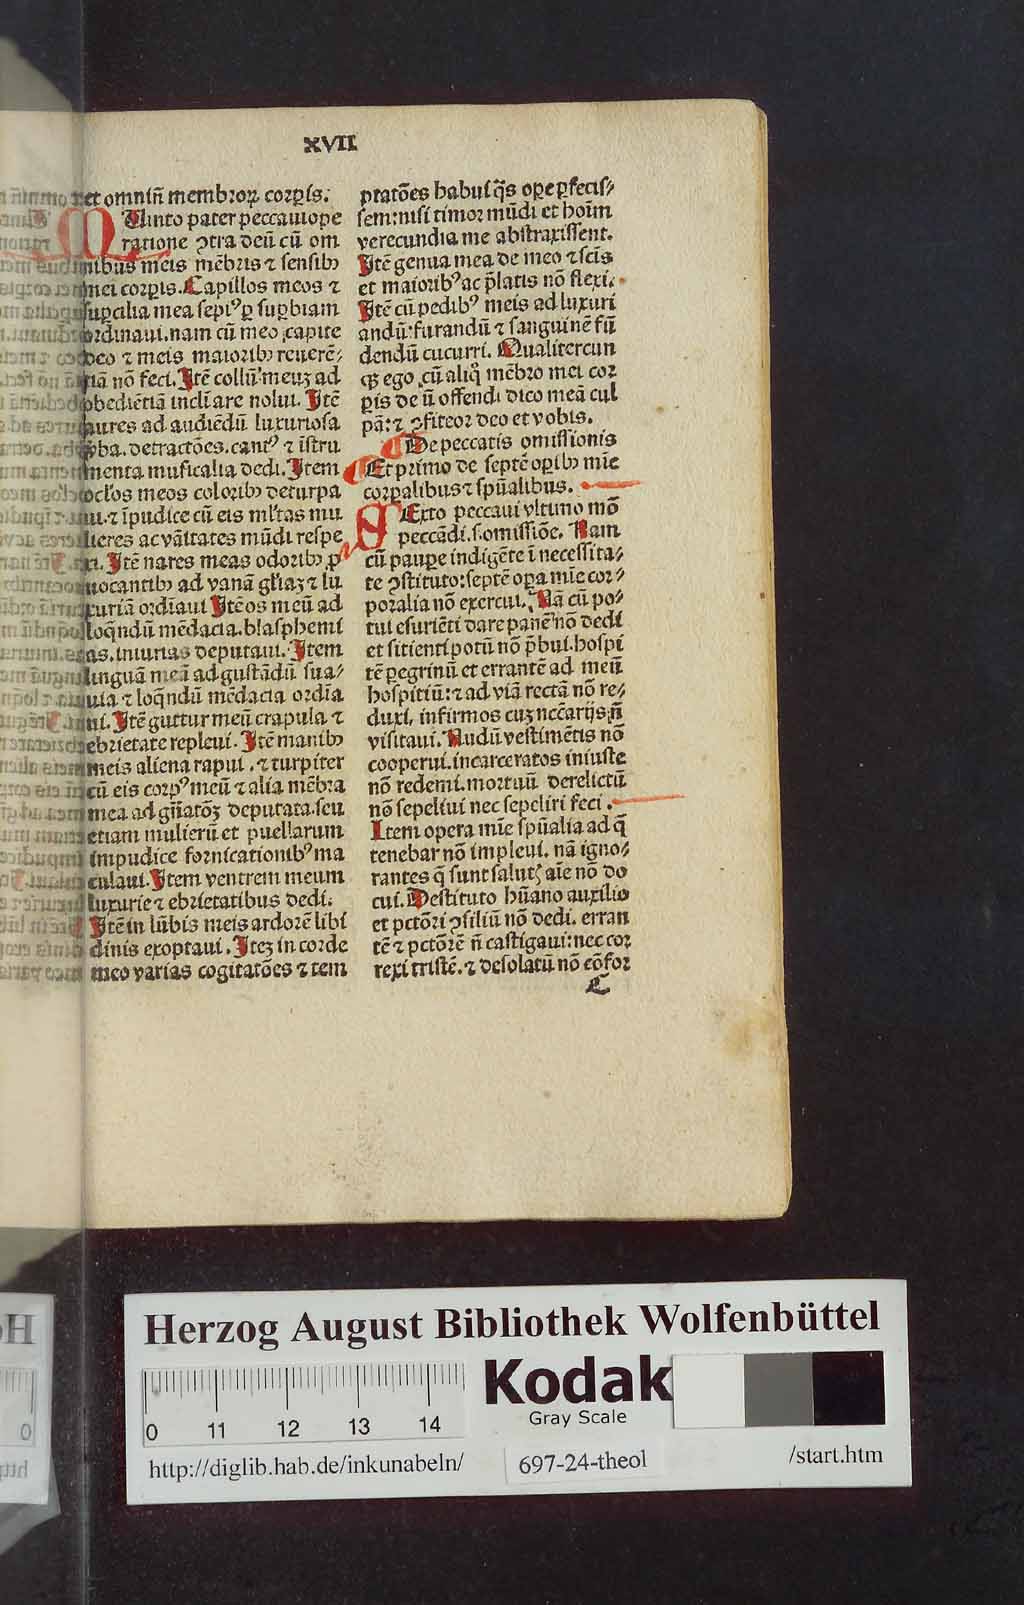 XVII
et omniū membroꝝ corꝑis.
Uinto pater peccaui ope
ratione ꝯtra deū cū om
nibus meis mēbris ⁊ sensibꝫ
mei corꝑis. Capillos meos ⁊
suꝑcilia mea sepiꝰ ꝑ suꝑbiam
ordinaui. nam cū meo capite
deo ⁊ meis maioribꝫ reuerē⸗
tiā nō feci. Itē collū meuꝫ ad
obediētiā incliare nolui. Itē
aures ad audiēdū luxuriosa
ꝟba. detractōes. cantꝰ ⁊ īstru
menta musicalia dedi. Item
oclos meos coloribꝫ deturpa
ui. ⁊ īpudice cū eis mltas mu
lieres ac vāitates mūdi respe
xi. Itē nares meas odoribꝫ ꝓ
uocantibꝫ ad vanā gliaꝫ ⁊ lu
xuriā ordīaui Itē os meū ad
loq̄ndū mēdacia. blasphemi
as. iniurias deputaui. Item
linguā meā ad gustādū sua⸗
uia ⁊ loq̄ndū mēdacia ordīa
ui. Itē guttur meū crapula ⁊
ebrietate repleui. Itē manibꝫ
meis aliena rapui. ⁊ turpiter
cū eis corpꝰ meū ⁊ alia mēbra
mea ad gn̄iatōꝫ deputata. seu
etiam mulierū et puellarum
impudice fornicationibꝰ ma
culaui. Item ventrem meum
luxurie ⁊ ebrietatibus dedi.
Itē in lūbis meis ardorē libi
dinis exoptaui. Iteꝫ in corde
meo varias cogitatōes ⁊ tem
ptatōes habui q̄s oꝑe ꝑfecis⸗
sem: nisi timor mūdi et hoīm
verecundia me abstraxissent.
Itē genua mea de meo ⁊ scīs
et maioribꝰ ac p̄latis nō flexi.
Itē cū pedibꝰ meis ad luxuri
andū: furandū ⁊ sanguinē fū
dendū cucurri. Qualitercun
qꝫ ego cū aliq̊ mēbro mei cor
ꝑis deū offendi dico meā cul
pā: ⁊ ꝯfiteor deo et vobis.
De peccatis omissionis
Et primo de septē oꝑibꝫ mīe
corꝑalibus ⁊ spūalibus.
SExto peccaui vltimo mō
peccādi. s. omissiōe. Nam
cū pauꝑe indigēte ī necessita⸗
te ꝯstituto: septē oꝑa mīe cor⸗
poralia nō exercui. Nā cū po⸗
tui esuriēti dare panē nō dedi
et sitienti potū nō p̄bui. hospi
tē ꝑegrinū et errantē ad meū
hospitiū: ⁊ ad viā rectā nō re⸗
duxi. infirmos cuꝫ nc̄carijs n̄
visitaui. Nudū vestimētis nō
cooperui. incarceratos iniuste
nō redemi. mortuū derelictū
nō sepeliui nec sepeliri feci.
Item opera mīe spūalia ad q̄
tenebar nō impleui. nā igno⸗
rantes q̄ sunt salutꝭ aīe nō do
cui. Destituto hūano auxilio
et pctōri ꝯsiliū nō dedi. erran
tē ⁊ pctōrē n̄ castigaui: nec cor
rexi tristē. ⁊ desolatū nō cōfor
C
Herzog August Bibliothek Wolfenbüttel
0 11 12 13 14
Kodak
Gray Scale
http://diglib.hab.de/inkunabeln/
697-24-theol
/start.htm